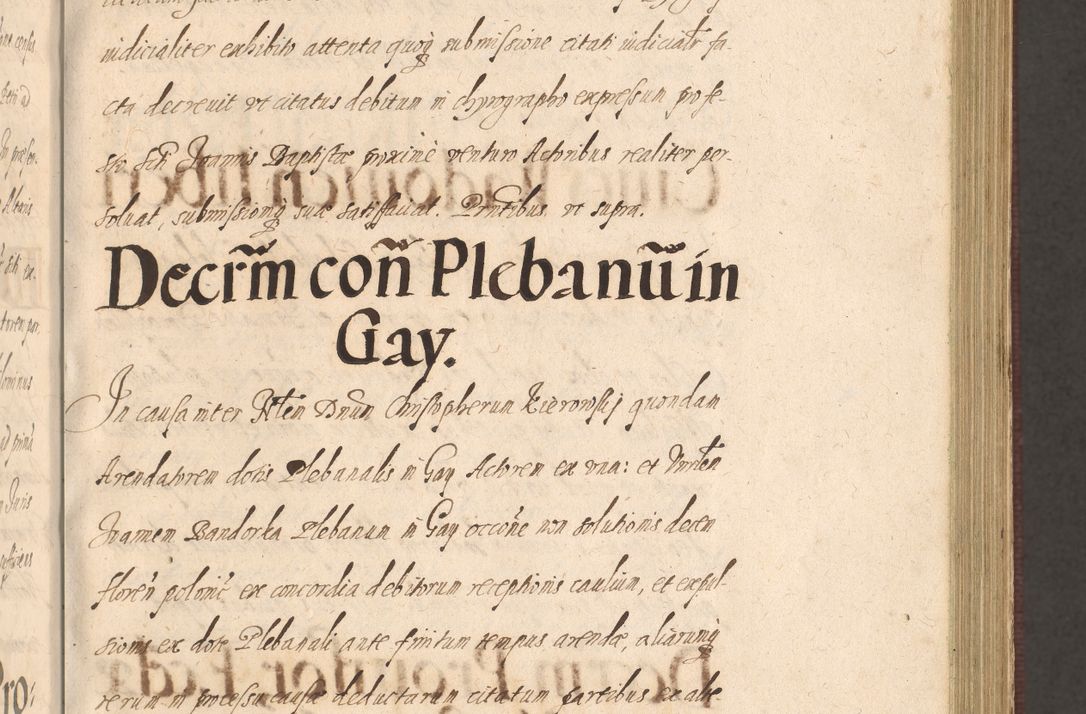 iudicialiter exhibito attenta quoq submissione citati iudicialr fa-
cta decreuit vt citatus debitum in chyrographo expressum pro fe-
sto Sti Joannis Baptistæ proximè venturo Actoribus realiter per-
soluat, submissioniq suæ satisfaciat. Prntibus vt supra.
Decrm̃ coñ Plebanũ in
Gay.
In causa inter Dnum Christopherum Kierowskj quondam
Arendatorem dotis Plebanalis in Gay Actorem ex vna: et
Joannem Bandorka Plebanum in Gay occone non solutionis decem
floren polonic ex concordia debitorum receptionis caulium, et expul-
sionis ex dote Plebanali ante finitum tempus arendæ, aliarumq
rerum in processu causæ deductarum citatum partibus ex alte-